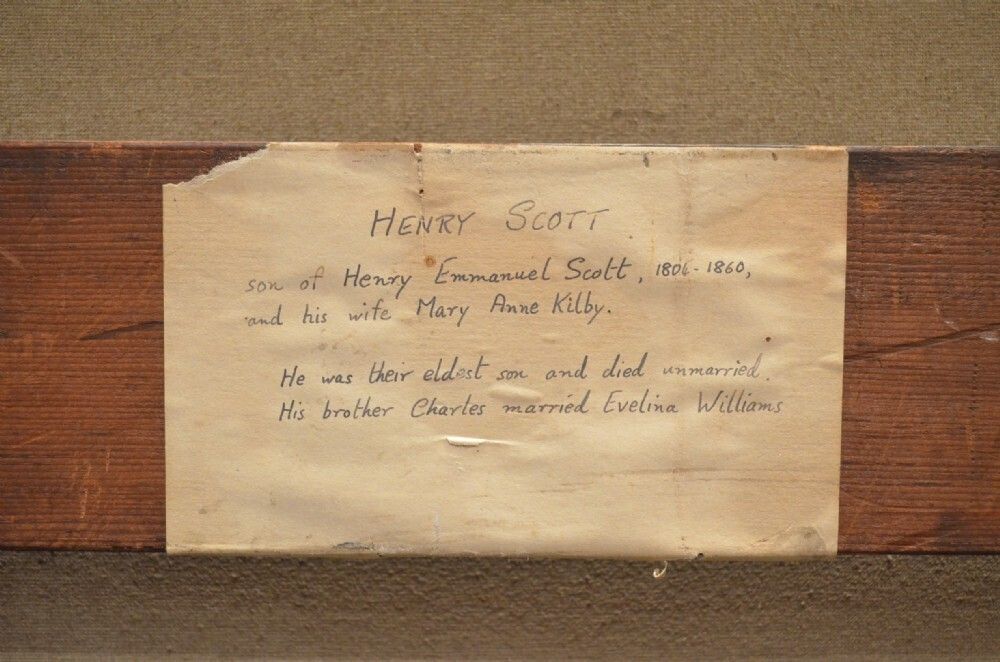 HENRY SCOTT
son of Henry Emmanuel Scott, 1806-1860,
and his wife Mary Anne Kilby.
He was their eldest son and died unmarried.
His brother Charles married Evelina Williams